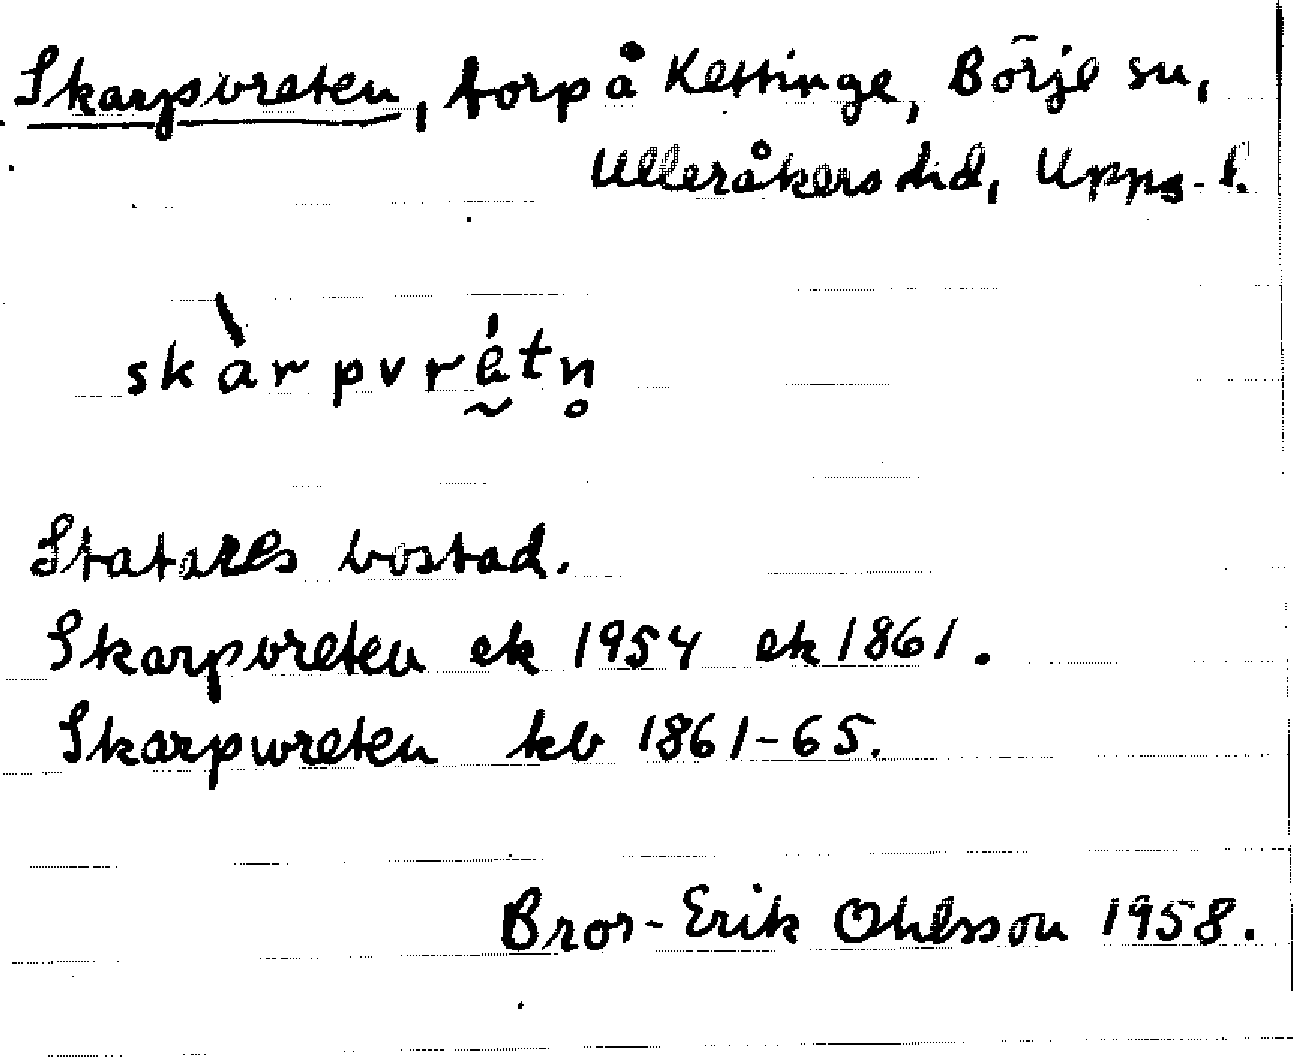 Skarpvreten, torp å Kettinge, Börje sn,
Ulleråkers hd, Upps. l.
skàrpvrḛ́tn̥
Statares bostad.
Skarpvreten ek 1954 ek 1861.
Skarpwreten kb 1861-65.
Bror-Erik Ohlsson 1958.